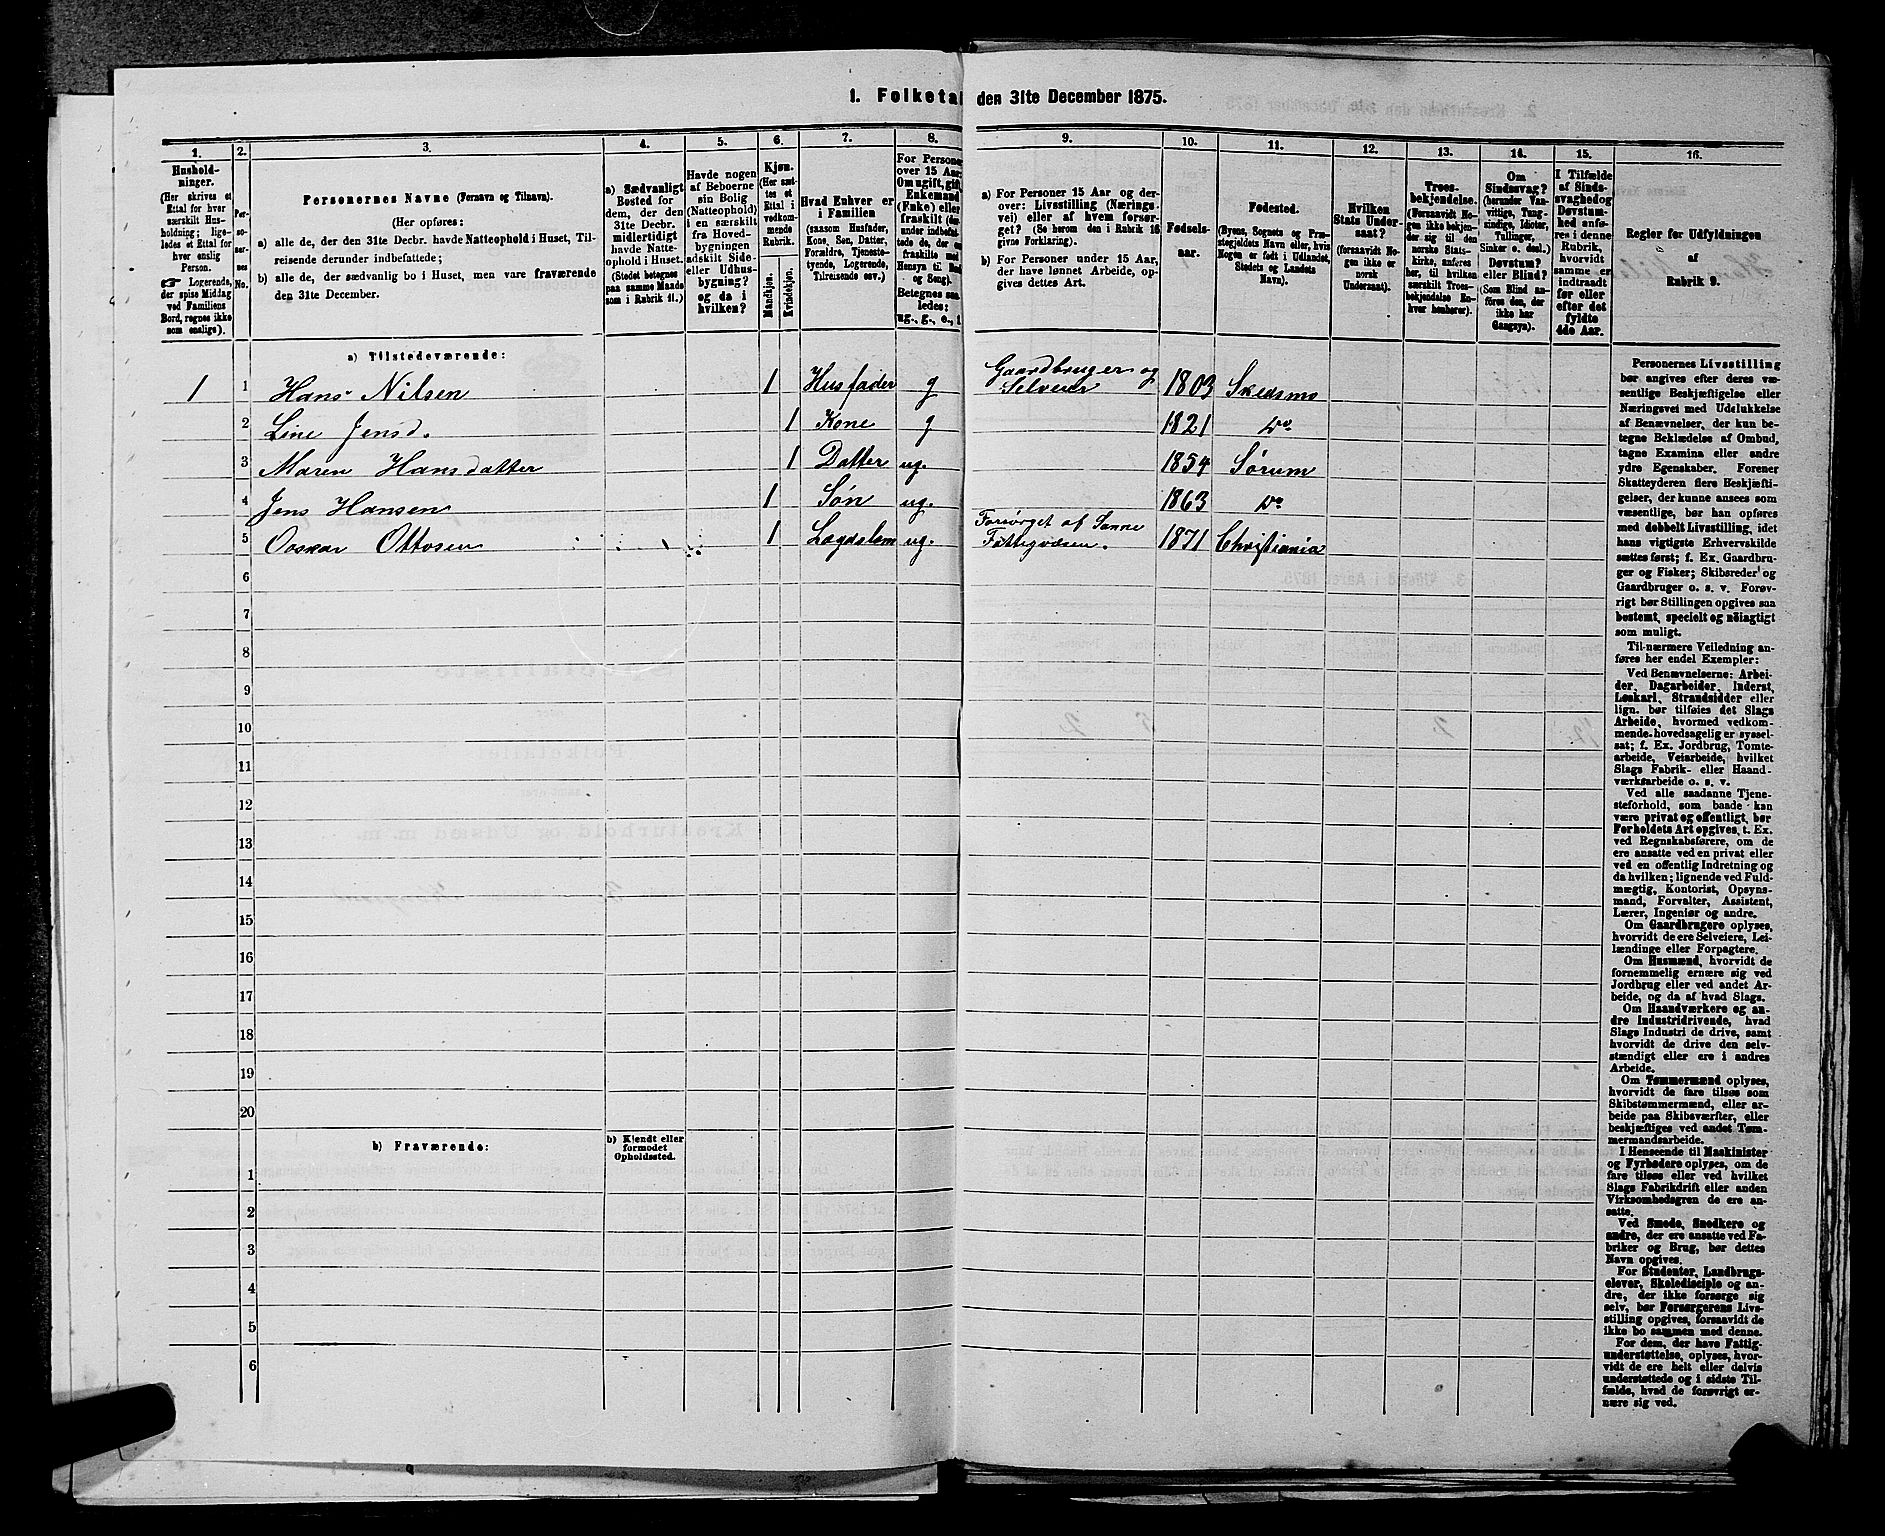 1. Folketal den 31te December 1875.
1.
Hushold-
ninger.
(Her skrives et
Ettal for hver
særskilt Hus-
holdning; lige-
ledes et Ettal for
hver enslig
Person.
☞ Logerende,
der spise Middag
ved Familiens
Bord, regnes ikke
som enslige).
2.
Per-
so-
ner-
nes
No.
3.
Personernes Navne (Fornavn og Tilnavn).
(Her opføres:
a) alle de, der den 31te Decbr. havde Natteophold i Huset, Til-
reisende derunder indbefattede;
b) alle de, der sædvanlig bo i Huset, men vare fraværende
den 31te December.
4.
a) Sædvanligt
Bosted for
dem, der den
31te Decbr.
midlertidigt
havde Natte-
ophold i Huset.
(Stedet betegnes
paa samme Maade
som i Rubrik 11.)
5.
Havde nogen
af Beboerne
sin Bolig
(Natteophold)
i en særskilt
fra Hoved-
bygningen
adskilt Side-
eller Udhus-
bygning?
og da i
hvilken?
6.
Kjøn.
(Her sæt-
tes et
Ettal i
vedkom-
mende
Rubrik.
Mandkjøn.
Kvindekjøn.
7.
Hvad Enhver er
i Familien
(saasom Husfader,
Kone, Søn, Datter,
Forældre, Tjeneste-
tyende, Logerende,
Tilreisende osv.).
8.
For Personer
over 15 Aar:
Om ugift, gift,
Enkemand
(Enke) eller
fraskilt
Betegnes saa-
ledes:
ug., g., e., f.
9.
a) For Personer 15 Aar og der-
over: Livsstilling (Nærings-
vei) eller af hvem forsør-
get? (Se herom den i Rubrik 16
givne Forklaring).
b) For Personer under 15 Aar,
der have lønnet Arbeide, op-
gives dettes Art.
10.
Fødsels-
aar.
11.
Fødested.
(Byens, Sognets og Præ-
stegjeldets Navn eller, hvis
Nogen er født i Udlandet,
Stedets og Landets
Navn).
12.
Hvilken
Stats Under-
saat?
(forsaavidt No-
gen ikke er
norsk
Undersaat).
13.
Troes-
bekjendelse.
(Forsaavidt No-
gen ikke bekjen-
der sig til den
norske Stats-
kirke, anføres
her, til hvilken
særskilt Troes-
bekjendelse En-
hver henhører).
14.
Om
Sindssvag?
(herunder Van-
vittige, Tung-
sindige, Idioter,
Tullinger,
Sinker o. desl.).
Døvstum?
eller Blind?
(Som Blind an-
føres den, der
ikke har
Gangsyn).
15.
I Tilfælde
af Sinds-
svaghed og
Døvstum-
hed anfø-
res i denne
Rubrik,
hvorvidt
samme er
indtraadt
før eller
efter det
fyldte
4de Aar.
16.
Regler for Udfyldningen
af
Rubrik 9.
a) Tilstedeværende:
1 1 Hans Nilsen 1 Husfader g Gaardbruger og Selveier 1803 Skedsmo
2 Line Jensd. 1 Kone g 1821 Do
3 Maren Hansdatter 1 Datter ug. 1854 Sørum
4 Jens Hansen 1 Søn ug. 1863 Do
5 Oaskar Ottosen 1 Lægdslem ug. Forsørget af Sanne Fattigvæsen. 1871 Christiania
6
7
8
9
10
11
12
13
14
15
16
17
18
19
20
b) Fraværende:
b) Kjendt eller
formodet
Opholdssted.
1
2
3
4
5
6
Personernes Livsstilling
bør angives efter deres væ-
sentlige Beskjæftigelse eller
Næringsvei med Udelukkelse
af Benævnelser, der kun be-
tegne Beklædelse af Ombud,
tagne Examina eller andre
ydre Egenskaber. Forener
Skatteyderen flere Beskjæfti-
gelser, der kunne ansees som
væsentlige, bør han opføres
med dobbelt Livsstilling, idet
hans vigtigste Erhvervskilde
sættes først; f. Ex. Gaardbru-
ger og Fisker; Skibsreder og
Gaardbruger o. s. v. Forøv-
rigt bør Stillingen opgives saa
bestemt, specielt og nøiagtigt
som muligt.
Til nærmere Veiledning an-
føres her endel Exempler:
Ved Benævnelserne: Arbei-
der, Dagarbeider, Inderst,
Løskarl, Strandsidder eller
lign. bør tilføies det Slags
Arbeide, hvormed vedkom-
mende hovedsagelig er syssel-
sat; f. Ex. Jordbrug, Tomte-
arbeide, Veiarbeide, hvilket
Slags Fabrik- eller Haand-
værksarbeide o. s. v.
Ved alle saadanne Tjene-
steforhold, som baade kan
være privat og offentligt, bør
Forholdets Art opgives, t. Ex.
ved Regnskabsførere, om de
ere ansatte ved en privat eller
ved en offentlig Indretning og
da hvilken; lignende ved Fuld-
mægtig, Kontorist, Opsyns-
mand, Forvalter, Assistent,
Lærer, Ingeniør og andre.
Om Gaardbrugere oplyses,
hvorvidt de ere Selveiere, Lei-
lændinge eller Forpagtere.
Om Husmænd, hvorvidt de
fornemmelig ernære sig ved
Jordbrug eller ved andet Ar-
beide, og da af hvad Slags.
Om Haandværkere og an-
dre Industridrivende, hvad
Slags Industri de drive, samt
hvorvidt de drive den selv-
stændigt eller ere i andres
Arbeide.
Om Tømmermænd oplyses,
hvorvidt de fare tilsøs som
Skibstømmermænd, eller ar-
beide paa Skibsværfter, eller
beskjæftiges ved andet Tøm-
mermandsarbeide.
I Henseende til Maskinister
og Fyrbødere oplyses, om de
fare tilsøs eller ved hvilket
Slags Fabrikdrift eller anden
Virksomhedsgren de ere an-
satte.
Ved Smede, Snedkere og
andre, der ere ansatte ved Fa-
briker og Brug, bør dettes
Navn opgives.
For Studenter, Landbrugs-
elever, Skoledisciple og an-
dre, der ikke forsørge sig
selv, bør Forsørgerens Livs-
stilling opgives, forsaavidt de
ikke bo sammen med denne.
For dem, der have Fattig-
understøttelse, oplyses, hvor-
vidt de ere helt eller delvis
understøttede og i sidste Til-
fælde, hvad de forøvrigt er-
nære sig ved.